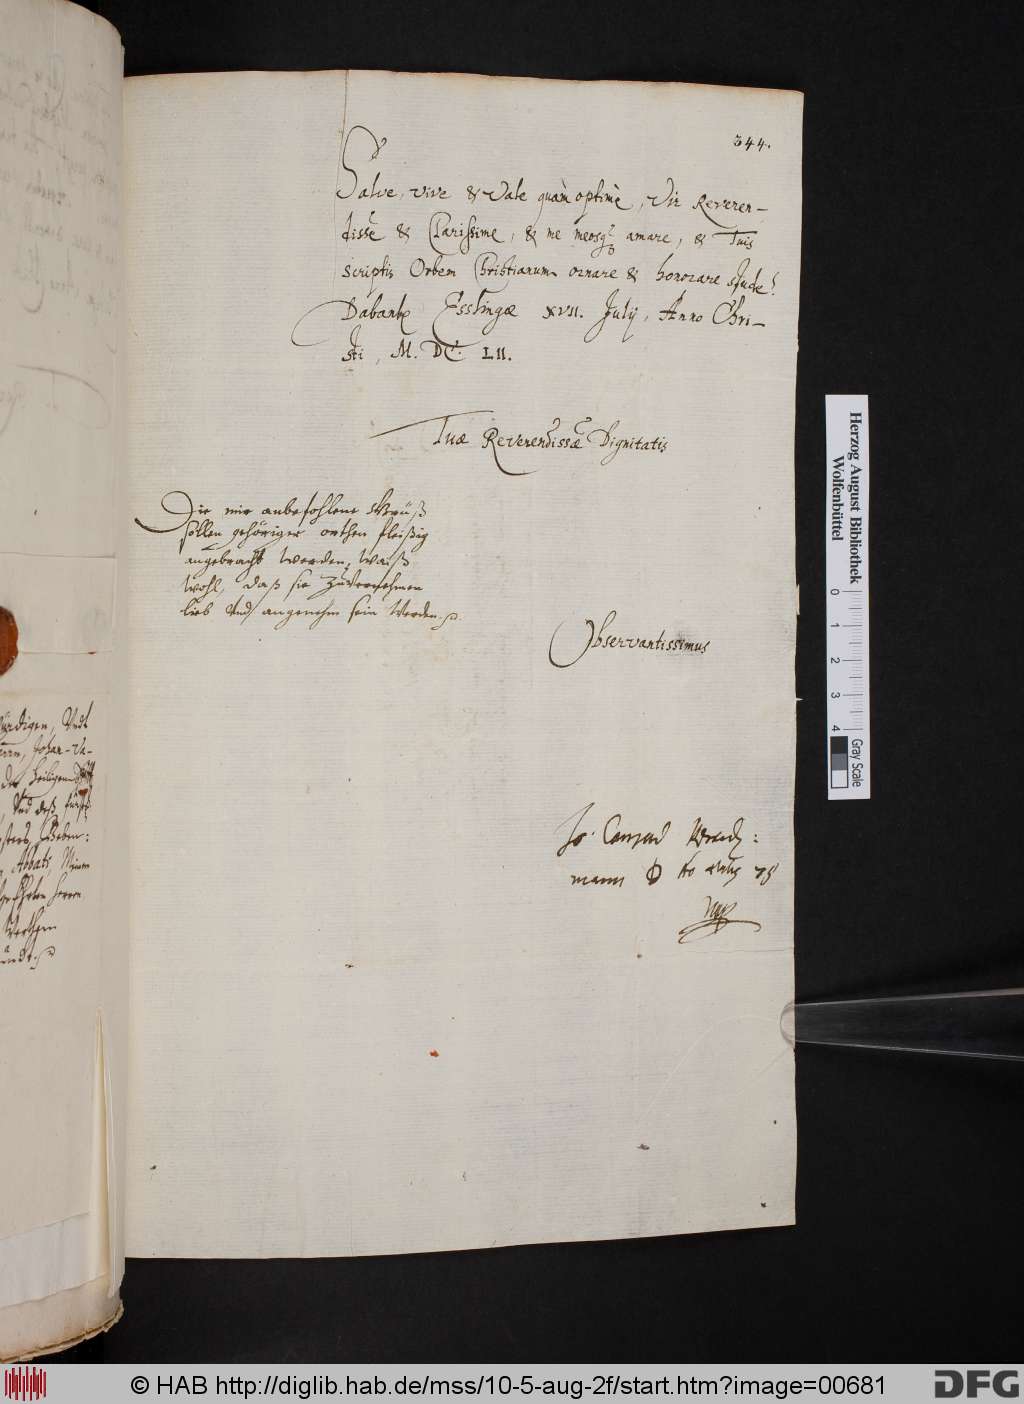 344.
Salve, vive & Vale quàm optimè, Vir Reveren-
dissē & Clarissime, & me meosq amare, & Tuis
scriptis Orbem Christianum ornare & honorare stude!
Dabantr Esslingæ XVII. Julij, Anno Chri-
sti, M. DC. LII.
Tuæ Reverendissæ Dignitatis
Die mir anbefohlene Grüß
sollen gehöriger orthen fleißig
angebracht werden, waiß
wohl, daß sie zuvernehmen
lieb und angenehm sein werden.
Observantissimus
Jo. Conrad
mann D
mp
würdigen, Undt
Herrn, Johan-Va-
der heiligen
Und deß fürstl:
Closters Beben:
Abbats, Meinem
geehrten Herrn
Herzog August Bibliothek
Wolfenbüttel
0 1 2 3 4
Gray Scale
© HAB http://diglib.hab.de/mss/10-5-aug-2f/start.htm?image=00681
DFG